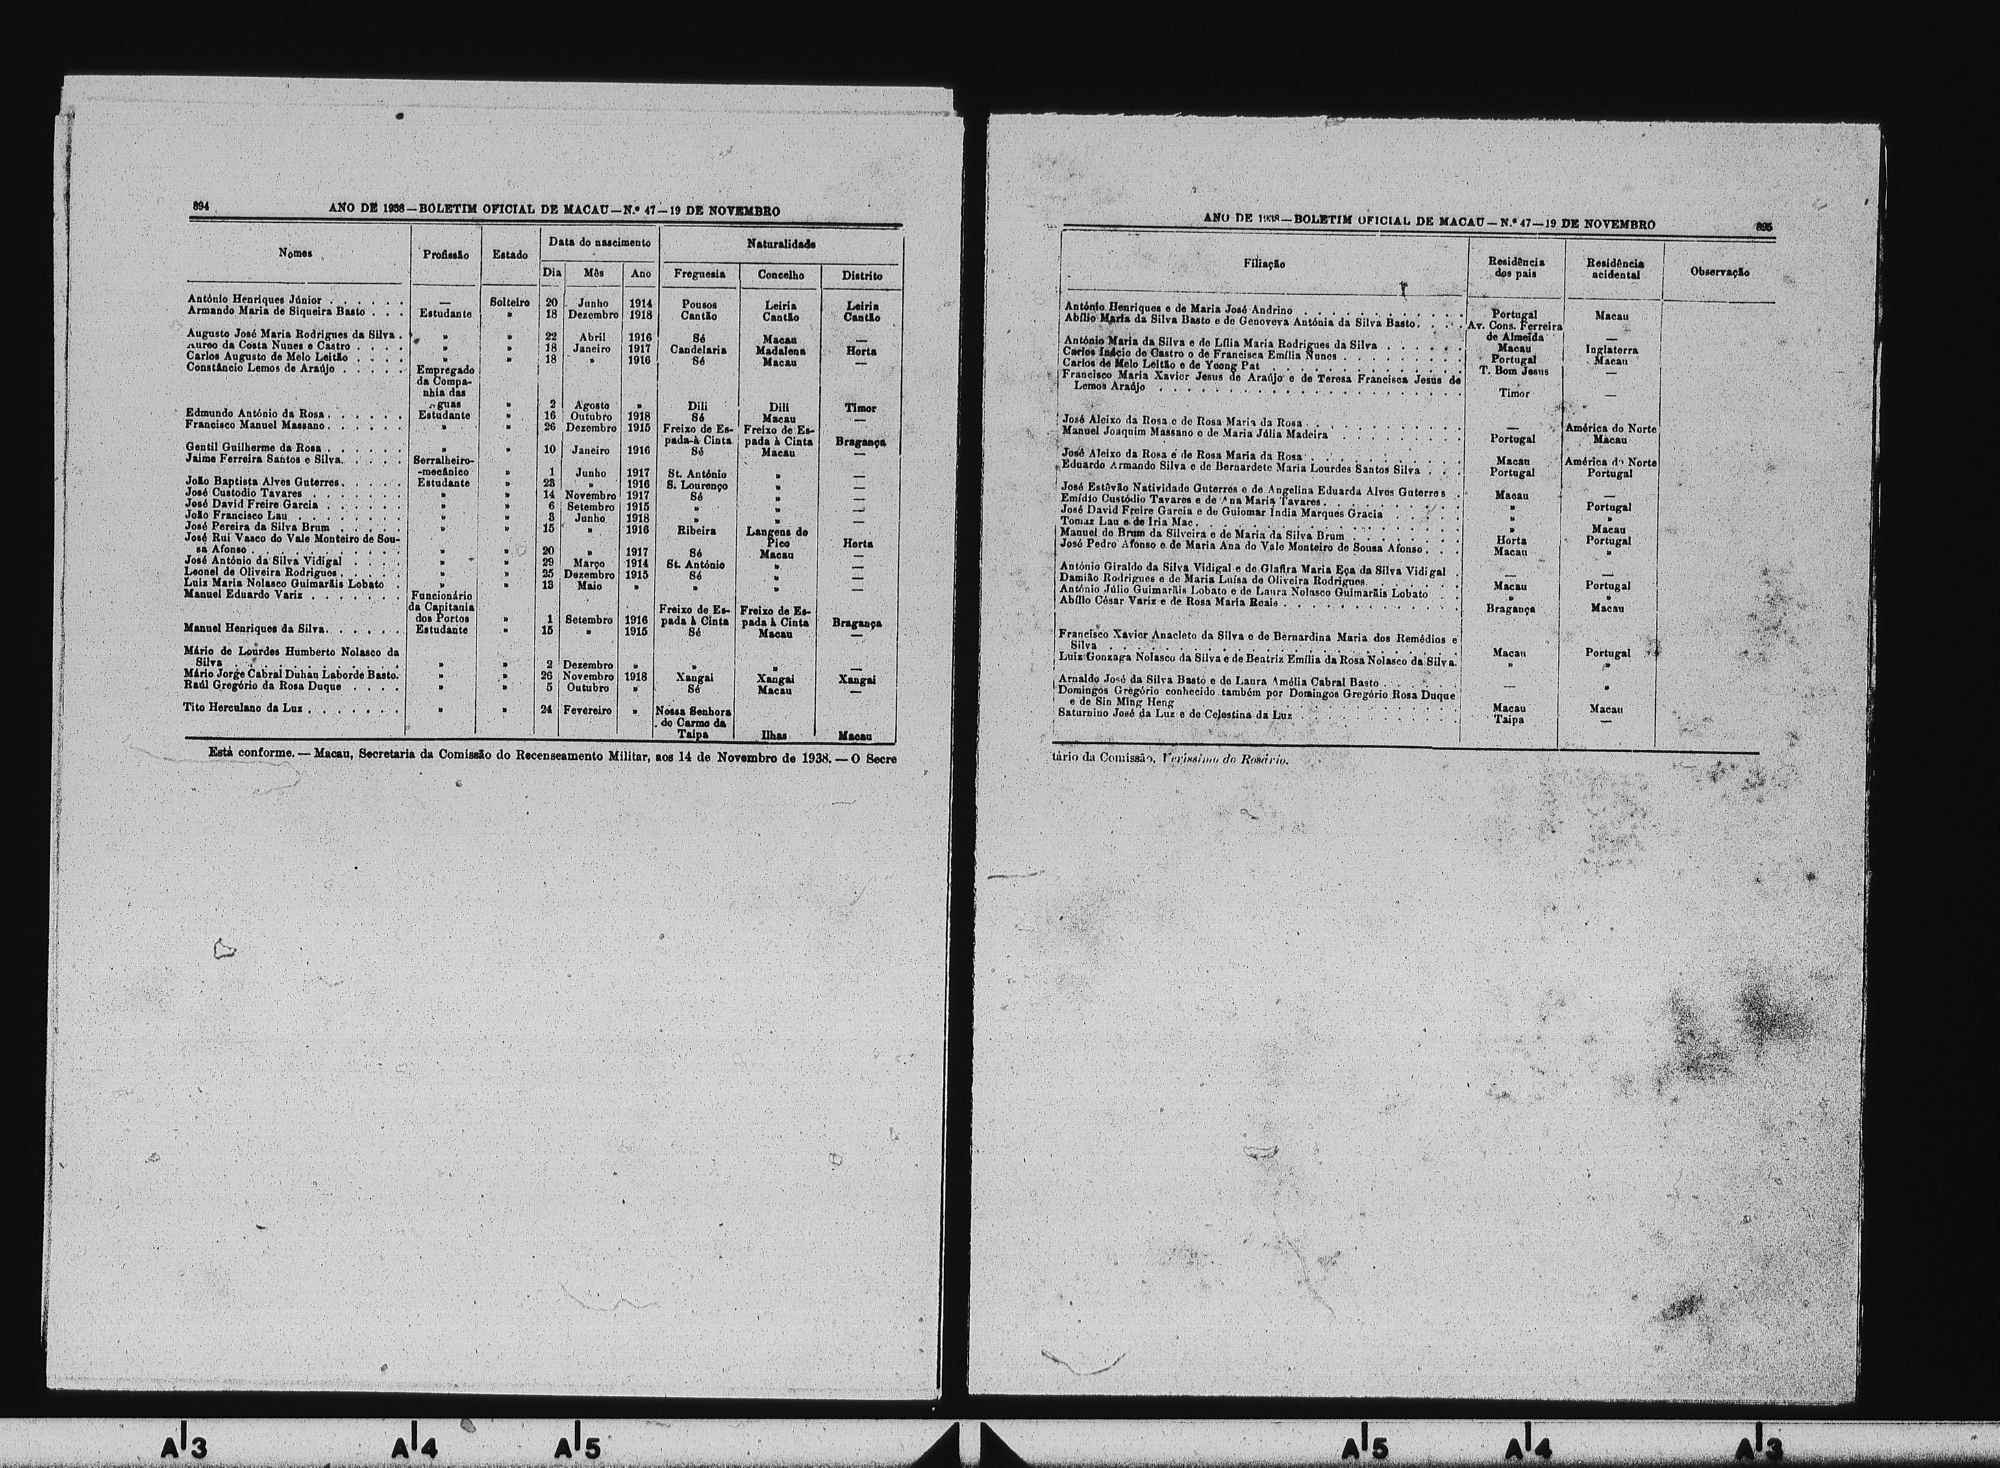 894
ANO DE 1938—BOLETIM OFICIAL DE MACAU—N.º 47—19 DE NOVEMBRO
Nomes Profissão Estado Data do nascimento Naturalidade
Dia Mês Ano Freguesia Concelho Distrito
António Henriques Júnior . . . . . . — Solteiro 20 Junho 1914 Pousos Leiria Leiria
Armando Maria de Siqueira Basto . . . Estudante » 18 Dezembro 1918 Cantão Cantão Cantão
Augusto José Maria Rodrigues da Silva . » » 22 Abril 1916 Sé Macau —
Aureo da Costa Nunes e Castro . . . . » » 18 Janeiro 1917 Candelaria Madalena Horta
Carlos Augusto de Melo Leitão . . . . » » 18 » 1916 Sé Macau —
Constâncio Lemos de Araújo . . . . . Empregado
da Compa-
nhia das
Águas » 2 Agosto » Dili Dili Timor
Edmundo António da Rosa . . . . . . Estudante » 16 Outubro 1918 Sé Macau —
Francisco Manuel Massano . . . . . . » » 26 Dezembro 1915 Freixo de Es- Freixo de Es-
pada-à Cinta pada à Cinta Bragança
Gentil Guilherme da Rosa . . . . . . » » 10 Janeiro 1916 Sé Macau —
Jaime Ferreira Santos e Silva . . . . . Serralheiro-
-mecânico » 1 Junho 1917 St. António » —
João Baptista Alves Guterres . . . . . Estudante » 23 » 1916 S. Lourenço » —
José Custodio Tavares . . . . . . . » » 14 Novembro 1917 Sé » —
José David Freire Garcia . . . . . . » » 6 Setembro 1915 » » —
João Francisco Lau . . . . . . . . » » 3 Junho 1918 » » —
José Pereira da Silva Brum . . . . . » » 15 » 1916 Ribeira Langens do
Pico Horta
José Rui Vasco do Vale Monteiro de Sou-
sa Afonso . . . . . . . . . . . » » 20 » 1917 Sé Macau —
José António da Silva Vidigal . . . . » » 29 Março 1914 St. António » —
Leonel de Oliveira Rodrigues . . . . . » » 25 Dezembro 1915 Sé » —
Luiz Maria Nolasco Guimarãis Lobato . » » 13 Maio » » » —
Manuel Eduardo Variz . . . . . . . Funcionário
da Capitania
dos Portos » 1 Setembro 1916 Freixo de Es-
pada à Cinta Freixo de Es-
pada à Cinta Bragança
Manuel Henriques da Silva . . . . . . Estudante » 15 » 1915 Sé Macau —
Mário de Lourdes Humberto Nolasco da
Silva . . . . . . . . . . . . » » 2 Dezembro » » » —
Mário Jorge Cabral Duhau Laborde Basto. » » 26 Novembro 1918 Xangai Xangai Xangai
Raúl Gregório da Rosa Duque . . . . » » 5 Outubro » Sé Macau —
Tito Herculano da Luz . . . . . . . » » 24 Fevereiro » Nossa Senhora
do Carmo da
Taipa Ilhas Macau
Está conforme. — Macau, Secretaria da Comissão do Recenseamento Militar, aos 14 de Novembro de 1938. — O Secre
ANO DE 1938—BOLETIM OFICIAL DE MACAU—N.º 47—19 DE NOVEMBRO
895
Filiação Residência
dos pais Residência
acidental Observação
António Henriques e de Maria José Andrino . . . . . . . . . . Portugal Macau
Abílio Maria da Silva Basto e de Genoveva Antónia da Silva Basto . . . . Av. Cons. Ferreira
de Almeida —
António Maria da Silva e de Lília Maria Rodrigues da Silva . . . . . . Macau Inglaterra
Carlos Inácio de Castro e de Francisca Emília Nunes . . . . . . . . Portugal Macau
Carlos de Melo Leitão e de Yeong Pat . . . . . . . . . . . . T. Bom Jesus —
Francisco Maria Xavier Jesus de Araújo e de Teresa Francisca Jesus de
Lemos Araújo . . . . . . . . . . . . . . . . . . Timor —
José Aleixo da Rosa e de Rosa Maria da Rosa . . . . . . . . . . — América do Norte
Manuel Joaquim Massano e de Maria Júlia Madeira . . . . . . . . Portugal Macau
José Aleixo da Rosa e de Rosa Maria da Rosa . . . . . . . . . . Macau América do Norte
Eduardo Armando Silva e de Bernardete Maria Lourdes Santos Silva . . . Portugal Portugal
José Estêvão Natividade Guterres e de Angelina Eduarda Alves Guterres . Macau —
Emídio Custódio Tavares e de Ana Maria Tavares . . . . . . . . . » Portugal
José David Freire Garcia e de Guiomar Índia Marques Gracia . . . . . » »
Tomaz Lau e de Iria Mac . . . . . . . . . . . . . . . . » Macau
Manuel de Brum da Silveira e de Maria da Silva Brum . . . . . . . Horta Portugal
José Pedro Afonso e de Maria Ana do Vale Monteiro de Sousa Afonso . . . Macau »
António Giraldo da Silva Vidigal e de Glafira Maria Eça da Silva Vidigal . — —
Damião Rodrigues e de Maria Luísa de Oliveira Rodrigues . . . . . . Macau Portugal
António Júlio Guimarãis Lobato e de Laura Nolasco Guimarãis Lobato . . » »
Abílio César Variz e de Rosa Maria Reais . . . . . . . . . . . . Bragança Macau
Francisco Xavier Anacleto da Silva e de Bernardina Maria dos Remédios e
Silva . . . . . . . . . . . . . . . . . . . . . Macau Portugal
Luiz Gonzaga Nolasco da Silva e de Beatriz Emília da Rosa Nolasco da Silva. » »
Arnaldo José da Silva Basto e de Laura Amélia Cabral Basto . . . . . . — »
Domingos Gregório conhecido também por Domingos Gregório Rosa Duque
e de Sin Ming Heng . . . . . . . . . . . . . . . . Macau Macau
Saturnino José da Luz e de Celestina da Luz . . . . . . . . . . . Taipa —
tário da Comissão, Veríssimo do Rosário.
A3 A4 A5 A5 A4 A3